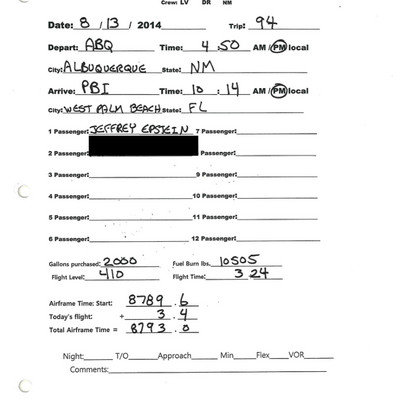 Crew: LV DR NM
Date: 8 / 13 / 2014 Trip: 94
Depart: ABQ Time: 4 : 50 AM / PM local
City: ALBUQUERQUE State: NM
Arrive: PBI Time: 10 : 14 AM / PM local
City: WEST PALM BEACH State: FL
1 Passenger: JEFFREY EPSTEIN 7 Passenger:
2 Passenger: Passenger:
3 Passenger: 9 Passenger:
4 Passenger: 10 Passenger:
5 Passenger: 11 Passenger:
6 Passenger: 12 Passenger:
Gallons purchased: 2000 Fuel Burn lbs. 10505
Flight Level: 410 Flight Time: 3 24
Airframe Time: Start: 8789 . 6
Today's flight: + 3 . 4
Total Airframe Time = 8793 . 0
Night: T/O Approach Min Flex VOR
Comments: